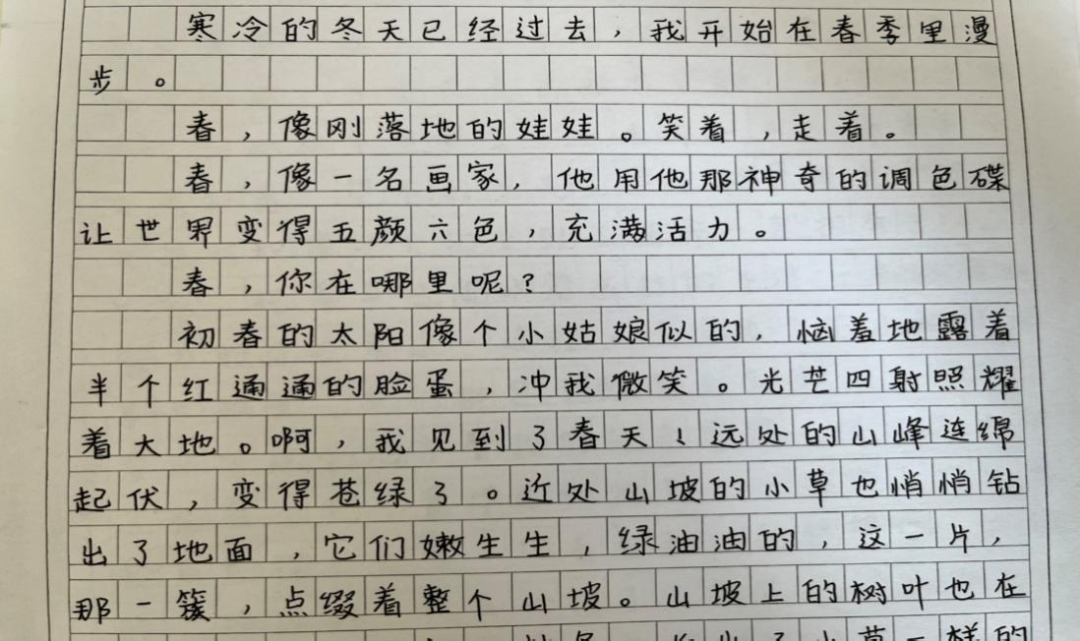 寒冷的冬天已经过去，我开始在春季里漫
步。
春，像刚落地的娃娃。笑着，走着。
春，像一名画家，他用他那神奇的调色碟
让世界变得五颜六色，充满活力。
春，你在哪里呢？
初春的太阳像个小姑娘似的，恼羞地露着
半个红通通的脸蛋，冲我微笑。光芒四射照耀
着大地。啊，我见到了春天！远处的山峰连绵
起伏，变得苍绿了。近处山坡的小草也悄悄钻
出了地面，它们嫩生生，绿油油的，这一片，
那一簇，点缀着整个山坡。山坡上的树叶也在